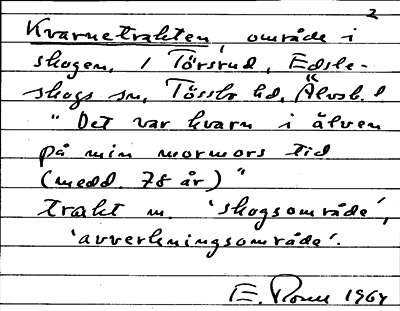 2
Kvarnetrakten, område i
skogen, i Törsrud, Edsle-
skogs sn, Tössbo hd, Älvsb. l
"Det var kvarn i älven
på min mormors tid
(medd. 78 år)"
trakt m. 'skogsområde',
'avverkningsområde'.
E. 1964